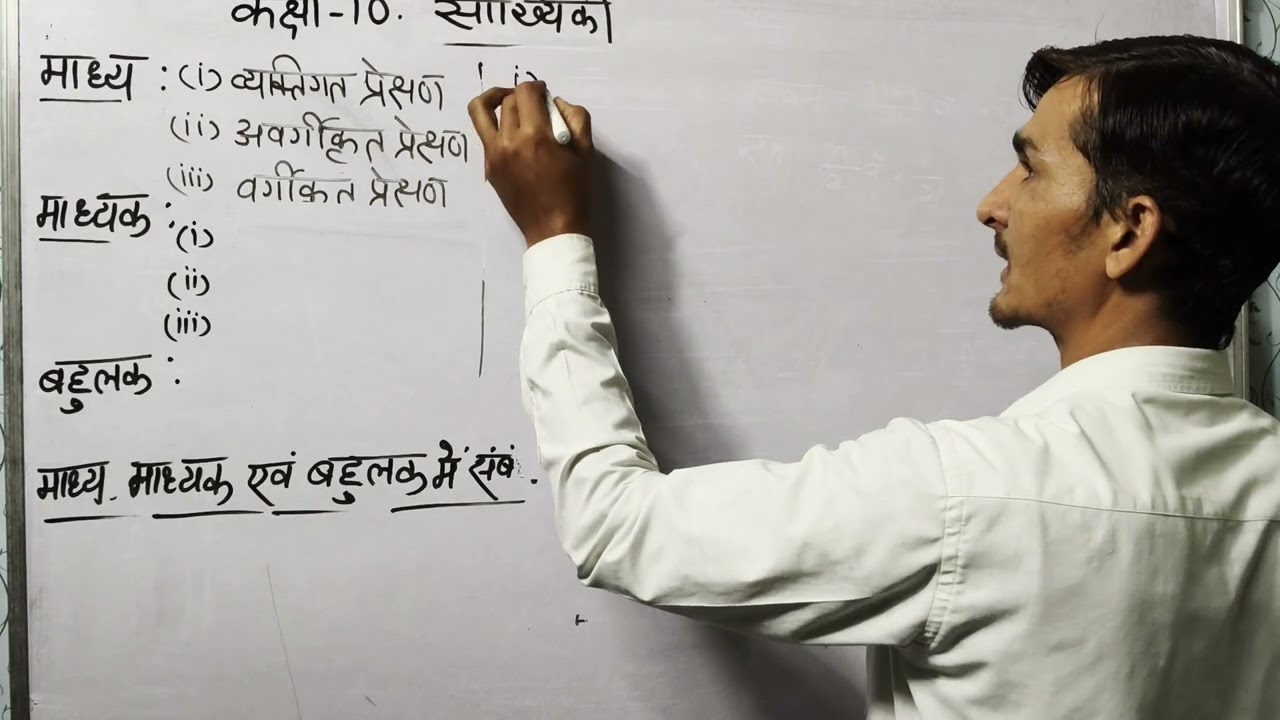 कक्षा-10. सांख्यिकी
माध्य : (i) व्यक्तिगत प्रेक्षण
(ii) अवर्गीकृत प्रेक्षण
(iii) वर्गीकत प्रेक्षण
माध्यक :
(i)
(ii)
(iii)
बहुलक :
माध्य. माध्यक एवं बहुलक में संबं.